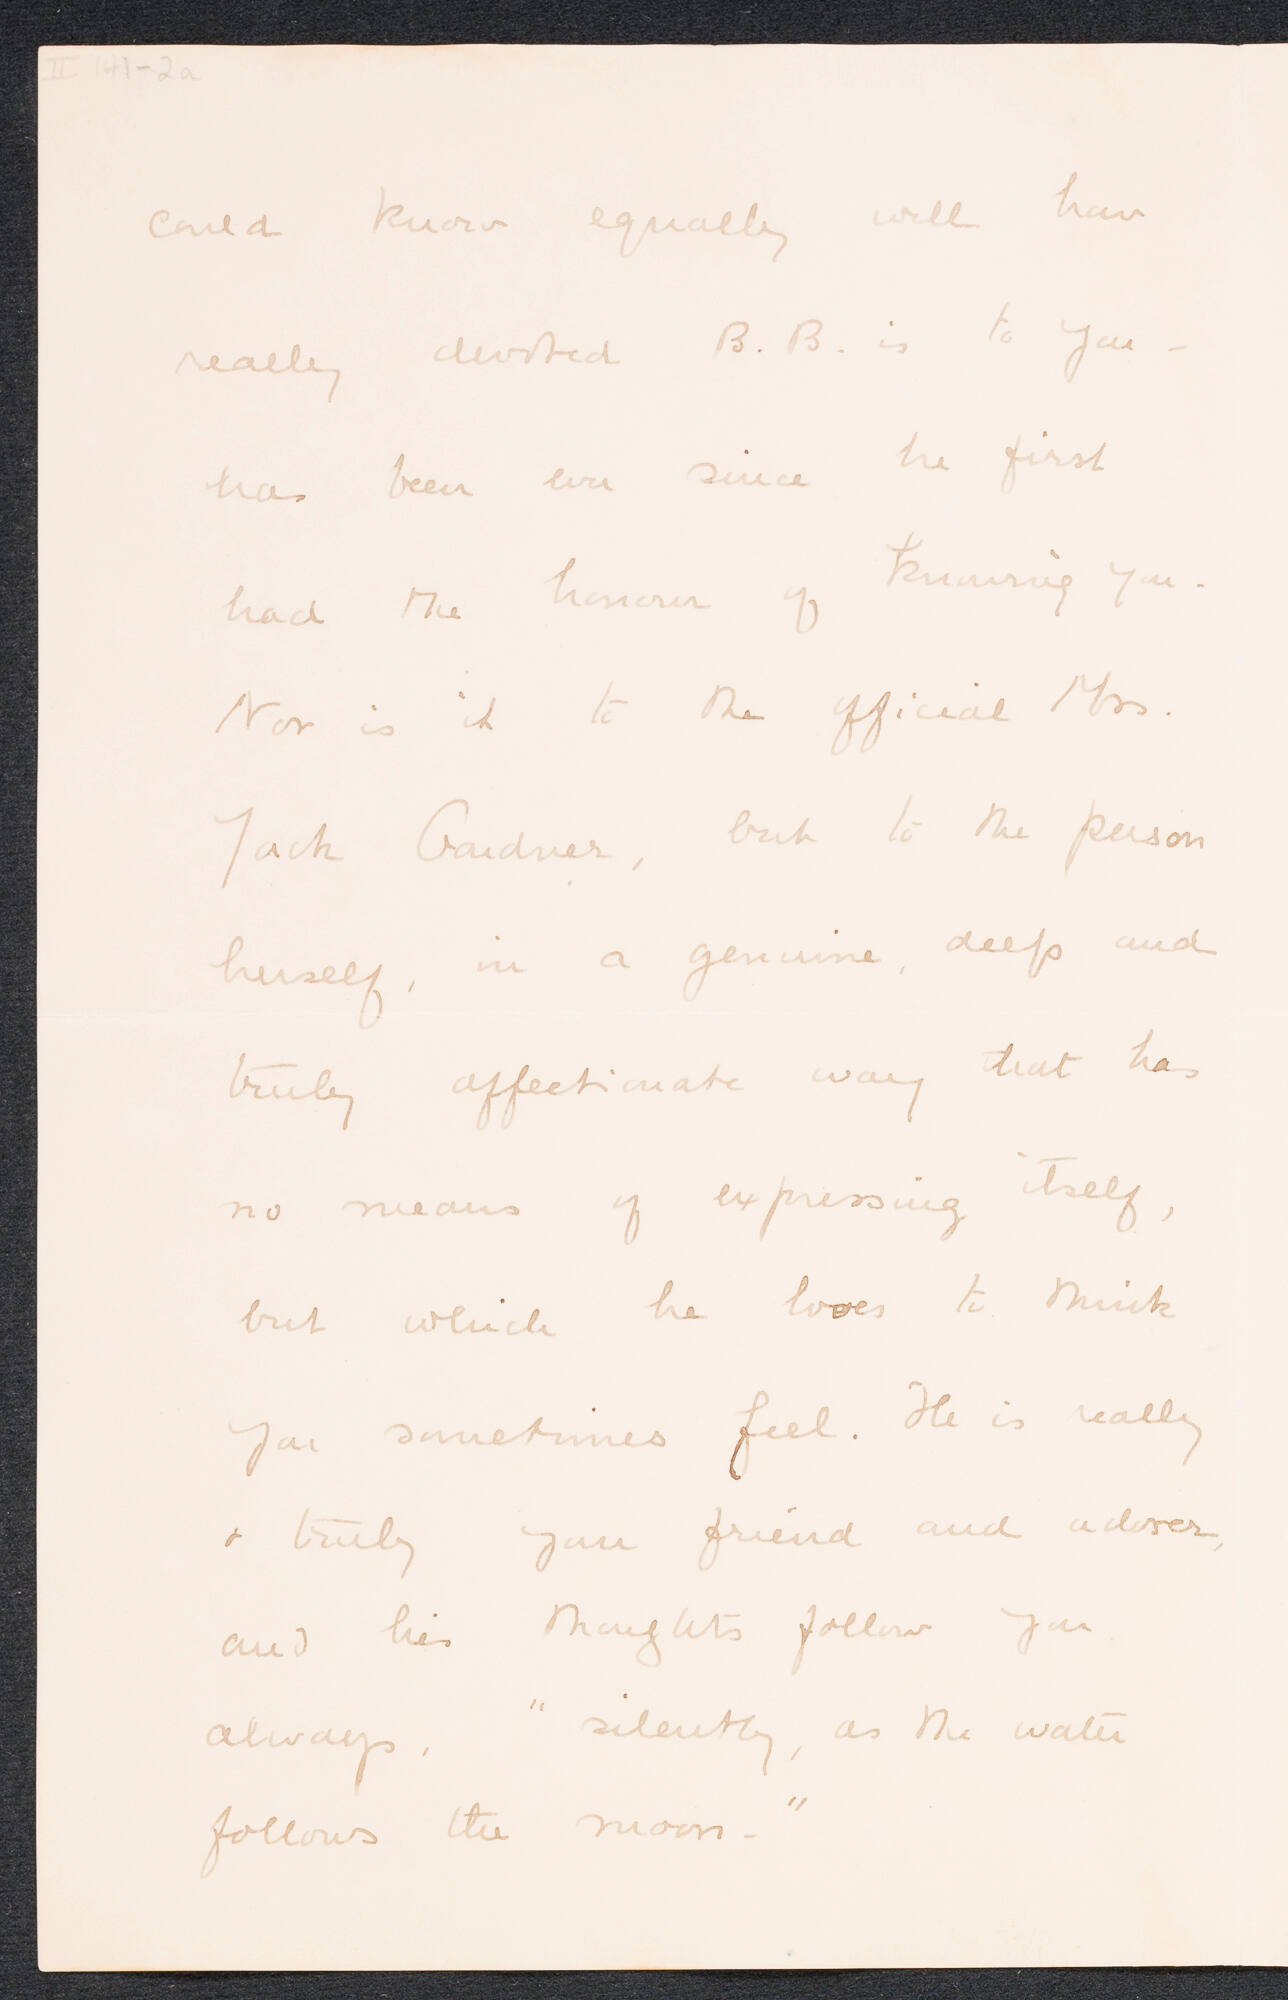 II 141-2a
could know equally well how
really devoted B. B. is to you -
has been ever since he first
had the honour of knowing you.
Nor is it to the official Mrs.
Jack Gardner, but to the person
herself, in a genuine, deep and
truly affectionate way that has
no means of expressing itself,
but which he loves to think
you sometimes feel. He is really
& truly your friend and adorer,
and his thoughts follow you
always, "silently, as the water
follows the moon."